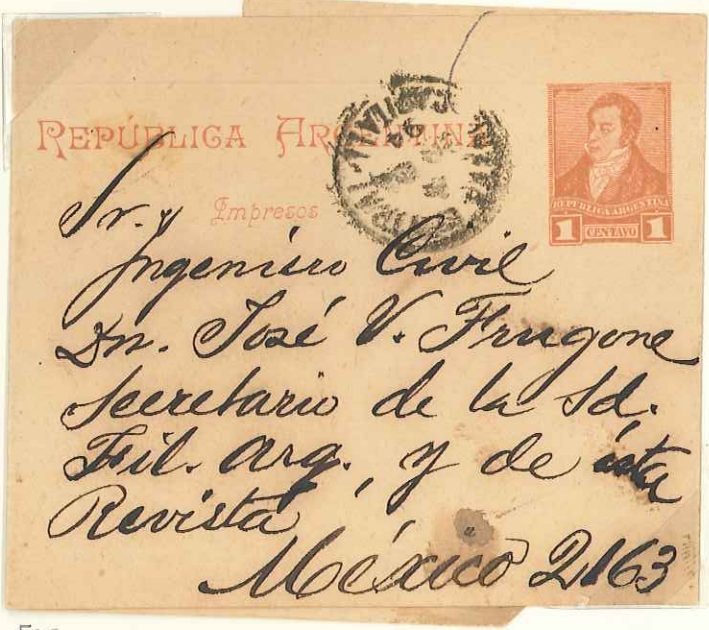 REPÚBLICA ARGENTINA
Impresos
REPUBLICA ARGENTINA
1 CENTAVO 1
Sr. y
Ingeniero Civil
Dn. José V. Frugone
Secretario de la Sd.
Fil. Arg., y de ésta
Revista
México 2163